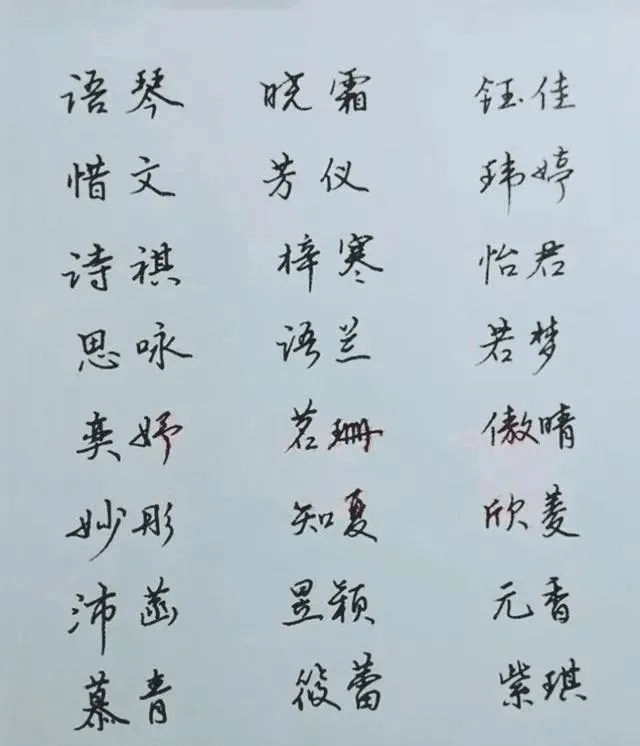 语琴 晓霜 钰佳
惜文 芳仪 玮婷
诗祺 梓寒 怡君
思咏 语兰 若梦
奕妤 茗珊 傲晴
妙彤 知夏 欣菱
沛菡 昱颖 元香
慕青 筱蕾 紫琪